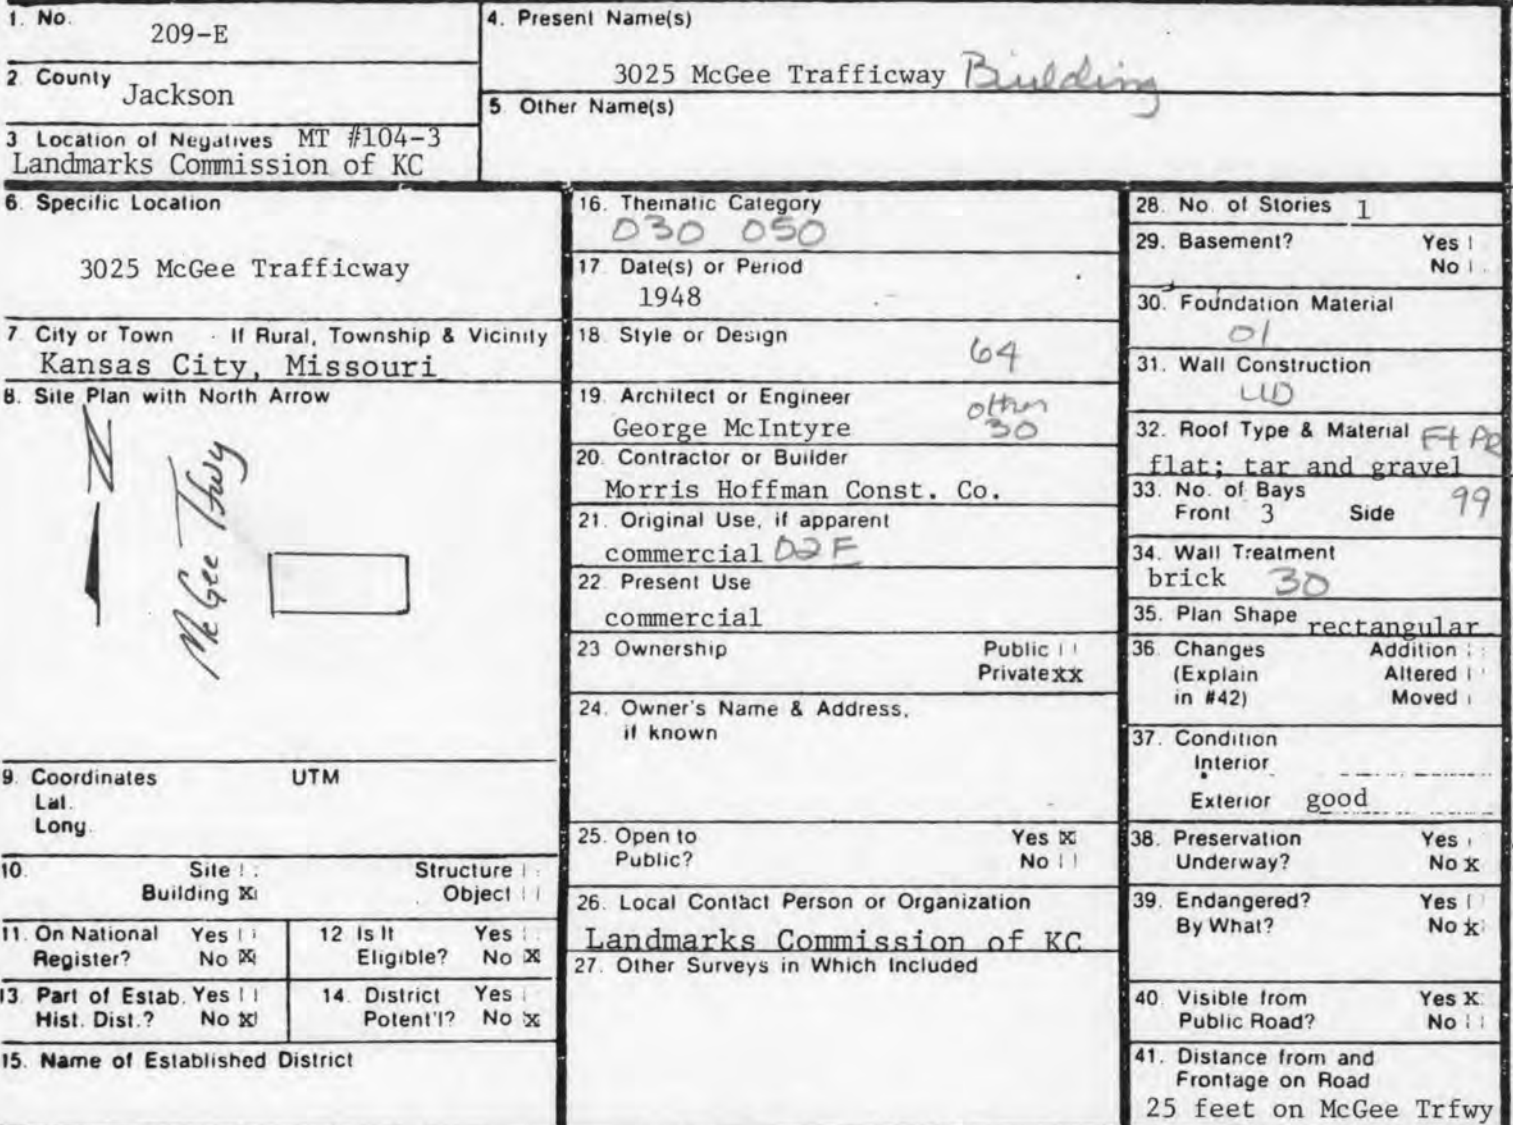 1. No.
209-E
2. County
Jackson
3 Location of Negatives MT #104-3
Landmarks Commission of KC
4. Present Name(s)
3025 McGee Trafficway Building
5. Other Name(s)
6. Specific Location
3025 McGee Trafficway
7. City or Town If Rural, Township & Vicinity
Kansas City, Missouri
8. Site Plan with North Arrow
N
McGee Tfwy
9. Coordinates UTM
Lat.
Long.
10. Site Structure
Building X Object
11. On National Yes
Register? No X
12 Is It Yes
Eligible? No X
13. Part of Estab. Yes
Hist. Dist.? No X
14. District Yes
Potent'l? No X
15. Name of Established District
16. Thematic Category
030 050
17. Date(s) or Period
1948
18. Style or Design
64
19. Architect or Engineer
other
George McIntyre 30
20. Contractor or Builder
Morris Hoffman Const. Co.
21. Original Use, if apparent
commercial 02E
22. Present Use
commercial
23 Ownership Public
Private xx
24. Owner's Name & Address,
if known
25. Open to Yes X
Public? No
26. Local Contact Person or Organization
Landmarks Commission of KC
27. Other Surveys in Which Included
28. No. of Stories 1
29. Basement? Yes
No
30. Foundation Material
01
31. Wall Construction
UD
32. Roof Type & Material Ft
flat; tar and gravel
33. No. of Bays 99
Front 3 Side
34. Wall Treatment
brick 30
35. Plan Shape rectangular
36. Changes Addition
(Explain Altered
in #42) Moved
37. Condition
Interior
Exterior good
38. Preservation Yes
Underway? No X
39. Endangered? Yes
By What? No X
40. Visible from Yes X
Public Road? No
41. Distance from and
Frontage on Road
25 feet on McGee Trfwy